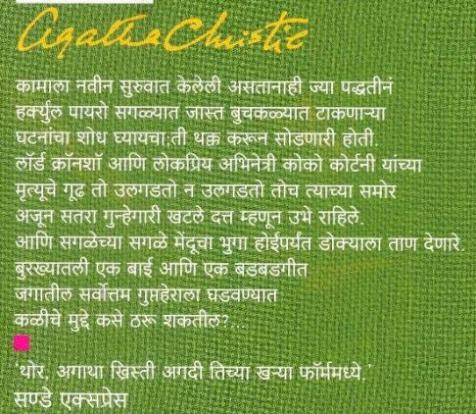 Agatha Christie
कामाला नवीन सुरुवात केलेली असतानाही ज्या पद्धतीनं
हर्क्युल पायरो सगळ्यात जास्त बुचकळ्यात टाकणाऱ्या
घटनांचा शोध घ्यायचा;ती थक्क करून सोडणारी होती.
लॉर्ड क्रॉनशॉ आणि लोकप्रिय अभिनेत्री कोको कोर्टनी यांच्या
मृत्यूचे गूढ तो उलगडतो न उलगडतो तोच त्याच्या समोर
अजून सतरा गुन्हेगारी खटले दत्त म्हणून उभे राहिले.
आणि सगळेच्या सगळे मेंदूचा भुगा होईपर्यंत डोक्याला ताण देणारे.
बुरख्यातली एक बाई आणि एक बडबडगीत
जगातील सर्वोत्तम गुप्तहेराला घडवण्यात
कळीचे मुद्दे कसे ठरू शकतील?...
'थोर, अगाथा ख्रिस्ती अगदी तिच्या खऱ्या फॉर्ममध्ये.'
सण्डे एक्सप्रेस